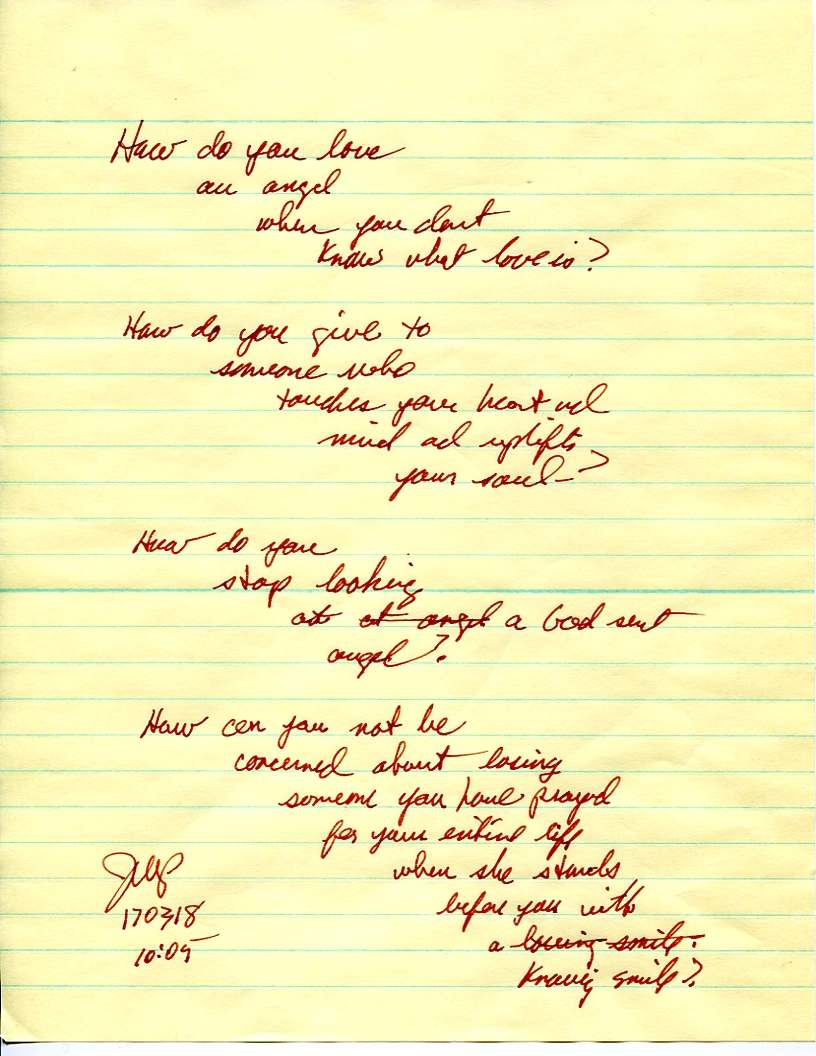 How do you love
an angel
when you dont
know what love is?
How do you give to
someone who
touches your heart and
mind and uplifts
your soul?
How do you
stop looking
at at angel a God sent
angel?
How can you not be
concerned about losing
someone you have prayed
for your entire life
when she stands
before you with
a loving smile.
Knowing smile?
170318
10:05